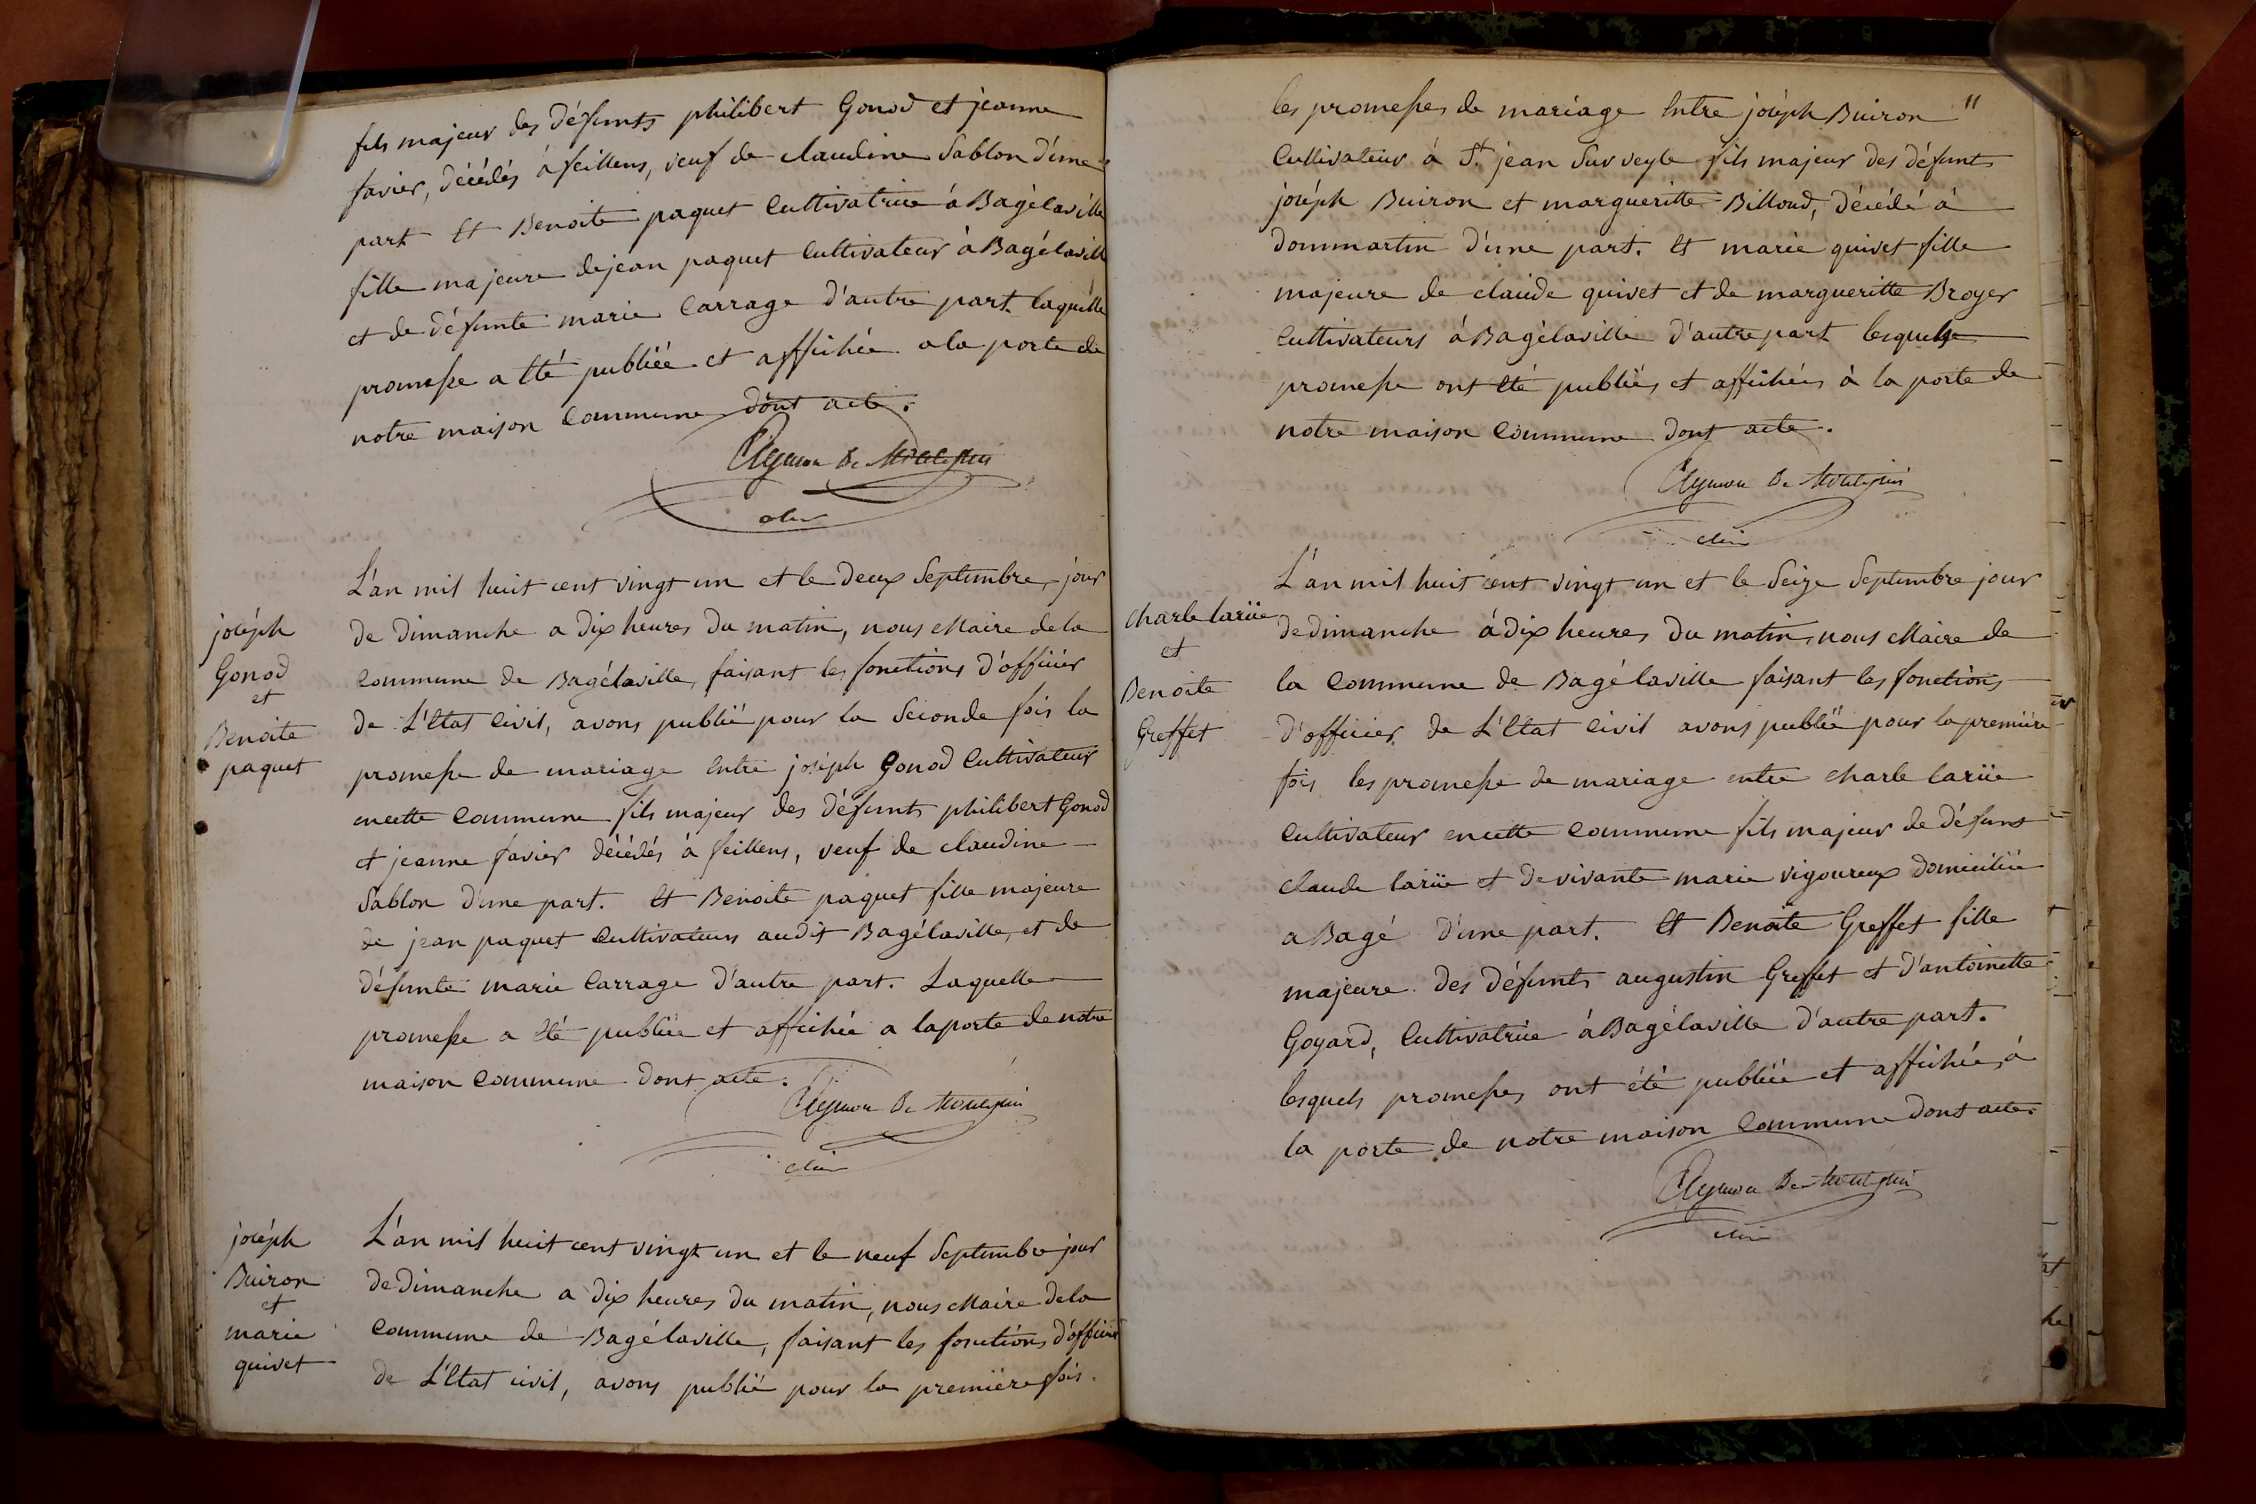 fils majeur des défunts philibert Gonod et jeanne
favier, décédés à feillens, veuf de claudine Sablon d'une
part Et Benoite paquet Cultivatrice à Bagélaville
fille majeure de jean paquet Cultivateur à Bagélaville
et de défunte marie Carrage d'autre part. laquelle
promesse a Eté publiéé et affichée a la porte de
notre maison Commune dont acte.
Aymon De Montépin
L'an mil huit cent vingt un et le deux Septembre, jour
de Dimanche a dix heures du matin, nous Maire de la
Commune de Bagélaville, faisant les fonctions d'officier
de L'Etat Civil, avons publié pour la Seconde fois la
promesse de mariage Entre joséph Gonod Cultivateur
en cette Commune fils majeur des défunts philibert Gonod
et jeanne favier décédés à feillens, veuf de claudine
Sablon d'une part. Et Benoite paquet fille majeure
de jean paquet Cultivateurs audit Bagélaville, et de
défunte marie Carrage d'autre part. Laquelle
promesse a Eté publiée et affichée a la porte de notre
maison Commune dont acte.
Aymon De Montépin
joséph
Gonod
et
Benoite
paquet
L'an mil huit cent vingt un et le neuf Septembre jour
de Dimanche a dix heures du matin, nous Maire de la
Commune de Bagélaville, faisant les fonctions d'officier
de L'Etat civil, avons publié pour la premiere fois.
joséph
Buiron
et
marie
quivet
11
les promesses de mariage Entre joséph Buiron
Cultivateur à St. jean Sur veyle fils majeur des défunts
joséph Buiron et margueritte Billoud, décédé à
dommartin d'une part. Et marie quivet fille
majeure de claude quivet et de margueritte Broyer
Cultivateurs à Bagélaville d'autre part lesquels
promesse ont Eté publiés et affichées à la porte de
notre maison Commune dont acte.
Aymon De Montépin
L'an mil huit cent vingt un et le Seize Septembre jour
de Dimanche à dix heures du matin, nous Maire de
la Commune de Bagélaville faisant les fonctions
d'officier de L'Etat Civil avons publié pour la premiere
fois les promesse de mariage entre charle lariie
Cultivateur en cette Commune fils majeur de défunt
claude lariie et de vivante marie vigoureux domiciliée
a Bagé d'une part. Et Benoite Greffet fille
majeure des défunts augustin Greffet et d'antoinette
Goyard, Cultivatrice à Bagélaville d'autre part.
lesquels promesses ont été publiée et affichée, à
la porte de notre maison Commune dont acte.
Aymon De Montépin
charle lariie
et
Benoite
Greffet